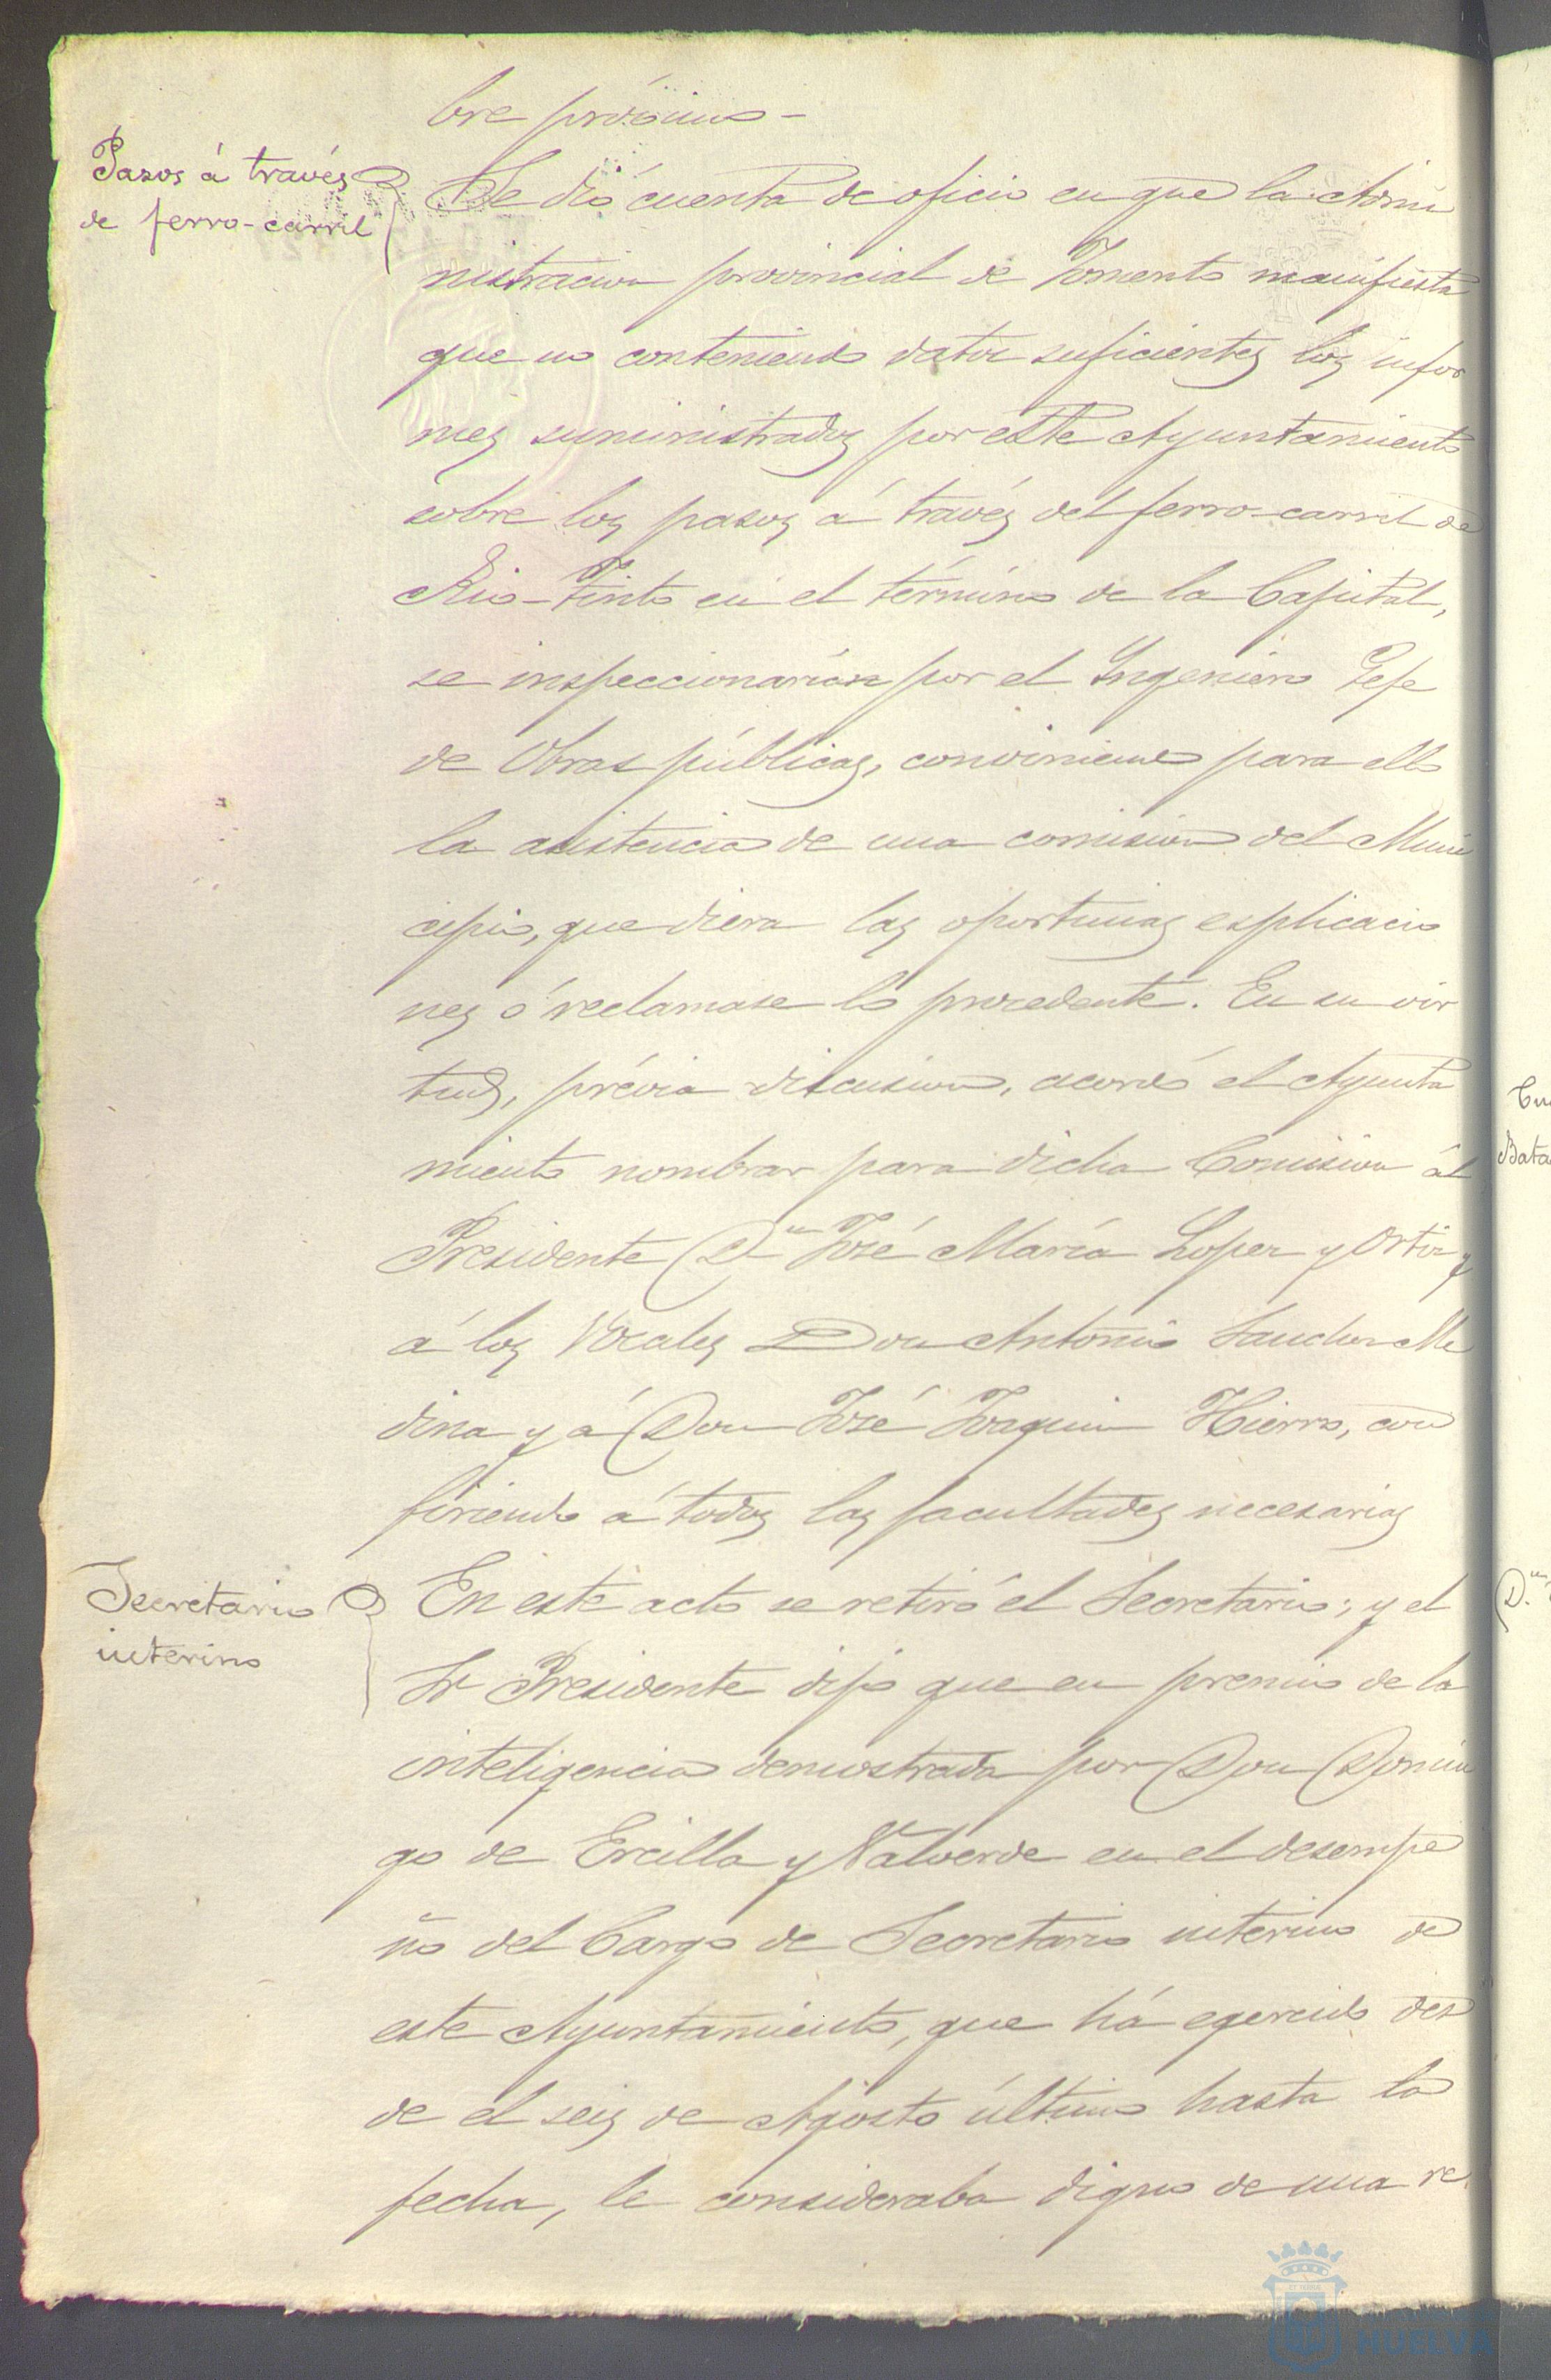 bre próximo-
Pasos á través
de ferro-carril
Se dió cuenta de oficio en que la Admi
nistracion provincial de Fomento manifiesta
que no conteniendo datos suficientes los infor
mes suministrados por este Ayuntamiento
sobre los pasos á través del ferro-carril de
Rio-Tinto en el término de la Capital,
se inspeccionarían por el Ingeniero Gefe
de Obras públicas, conviniendo para ello
la asistencia de una comision del Muni
cipio, que diera las oportunas esplicacio
nes ó reclamase lo procedente. En su vir
tud, prévia discusion, acordó el Ayunta
miento nombrar para dicha Comision ál
Presidente Dn José María Lopez y Ortiz y
á los Vocales Don Antonio Sanchez Me
dina y á Don José Joaquin Hierro, con
firiendo á todos las facultades necesarias
Secretario
interino
En este acto se retiró el Secretario; y el
Sr Presidente dijo que en premio de la
inteligencia demostrada por Don Domin
go de Ercilla y Valverde en el desempe
ño del Cargo de Secretario interino de
este Ayuntamiento, que há egercido des
de el seis de Agosto último hasta la
fecha, le consideraba digno de una re
Bata
Dn
HUELVA